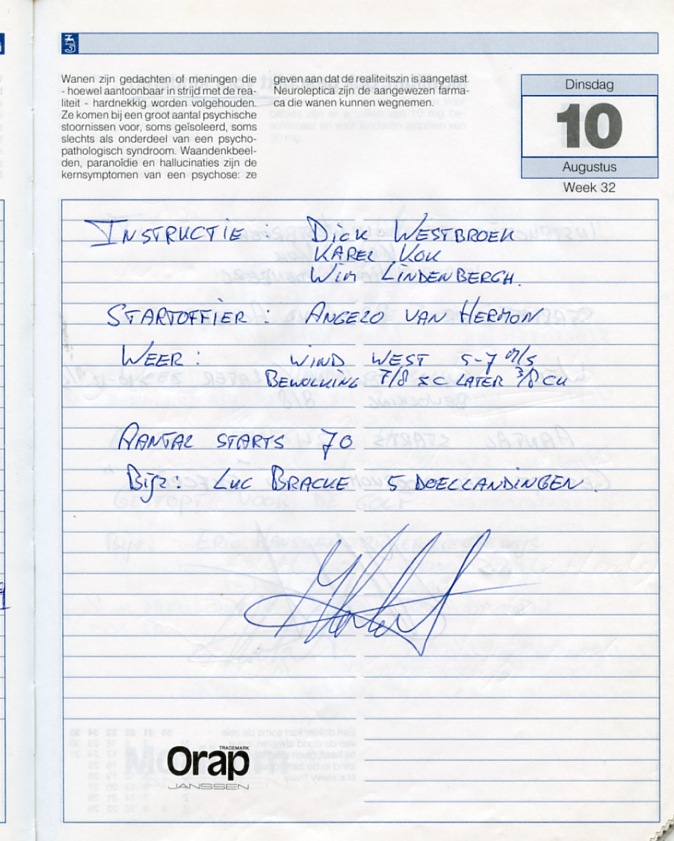 Wanen zijn gedachten of meningen die
- hoewel aantoonbaar in strijd met de rea-
liteit - hardnekkig worden volgehouden.
Ze komen bij een groot aantal psychische
stoornissen voor, soms geïsoleerd, soms
slechts als onderdeel van een psycho-
pathologisch syndroom. Waandenkbeel-
den, paranoïdie en hallucinaties zijn de
kernsymptomen van een psychose: ze
geven aan dat de realiteitszin is aangetast.
Neuroleptica zijn de aangewezen farma-
ca die wanen kunnen wegnemen.
Dinsdag
10
Augustus
Week 32
INSTRUCTIE : DICK WESTBROEK
KAREL KOK
WIM LINDENBERGH.
STARTOFFIER : ANGELO VAN HERMON
WEER : WIND WEST 5-7 m/s
BEWOLKING 7/8 SC LATER 3/8 CU
AANTAL STARTS 70
BIJZ: LUC BRACKE 5 DOELLANDINGEN.
TRADEMARK
Orap
JANSSEN